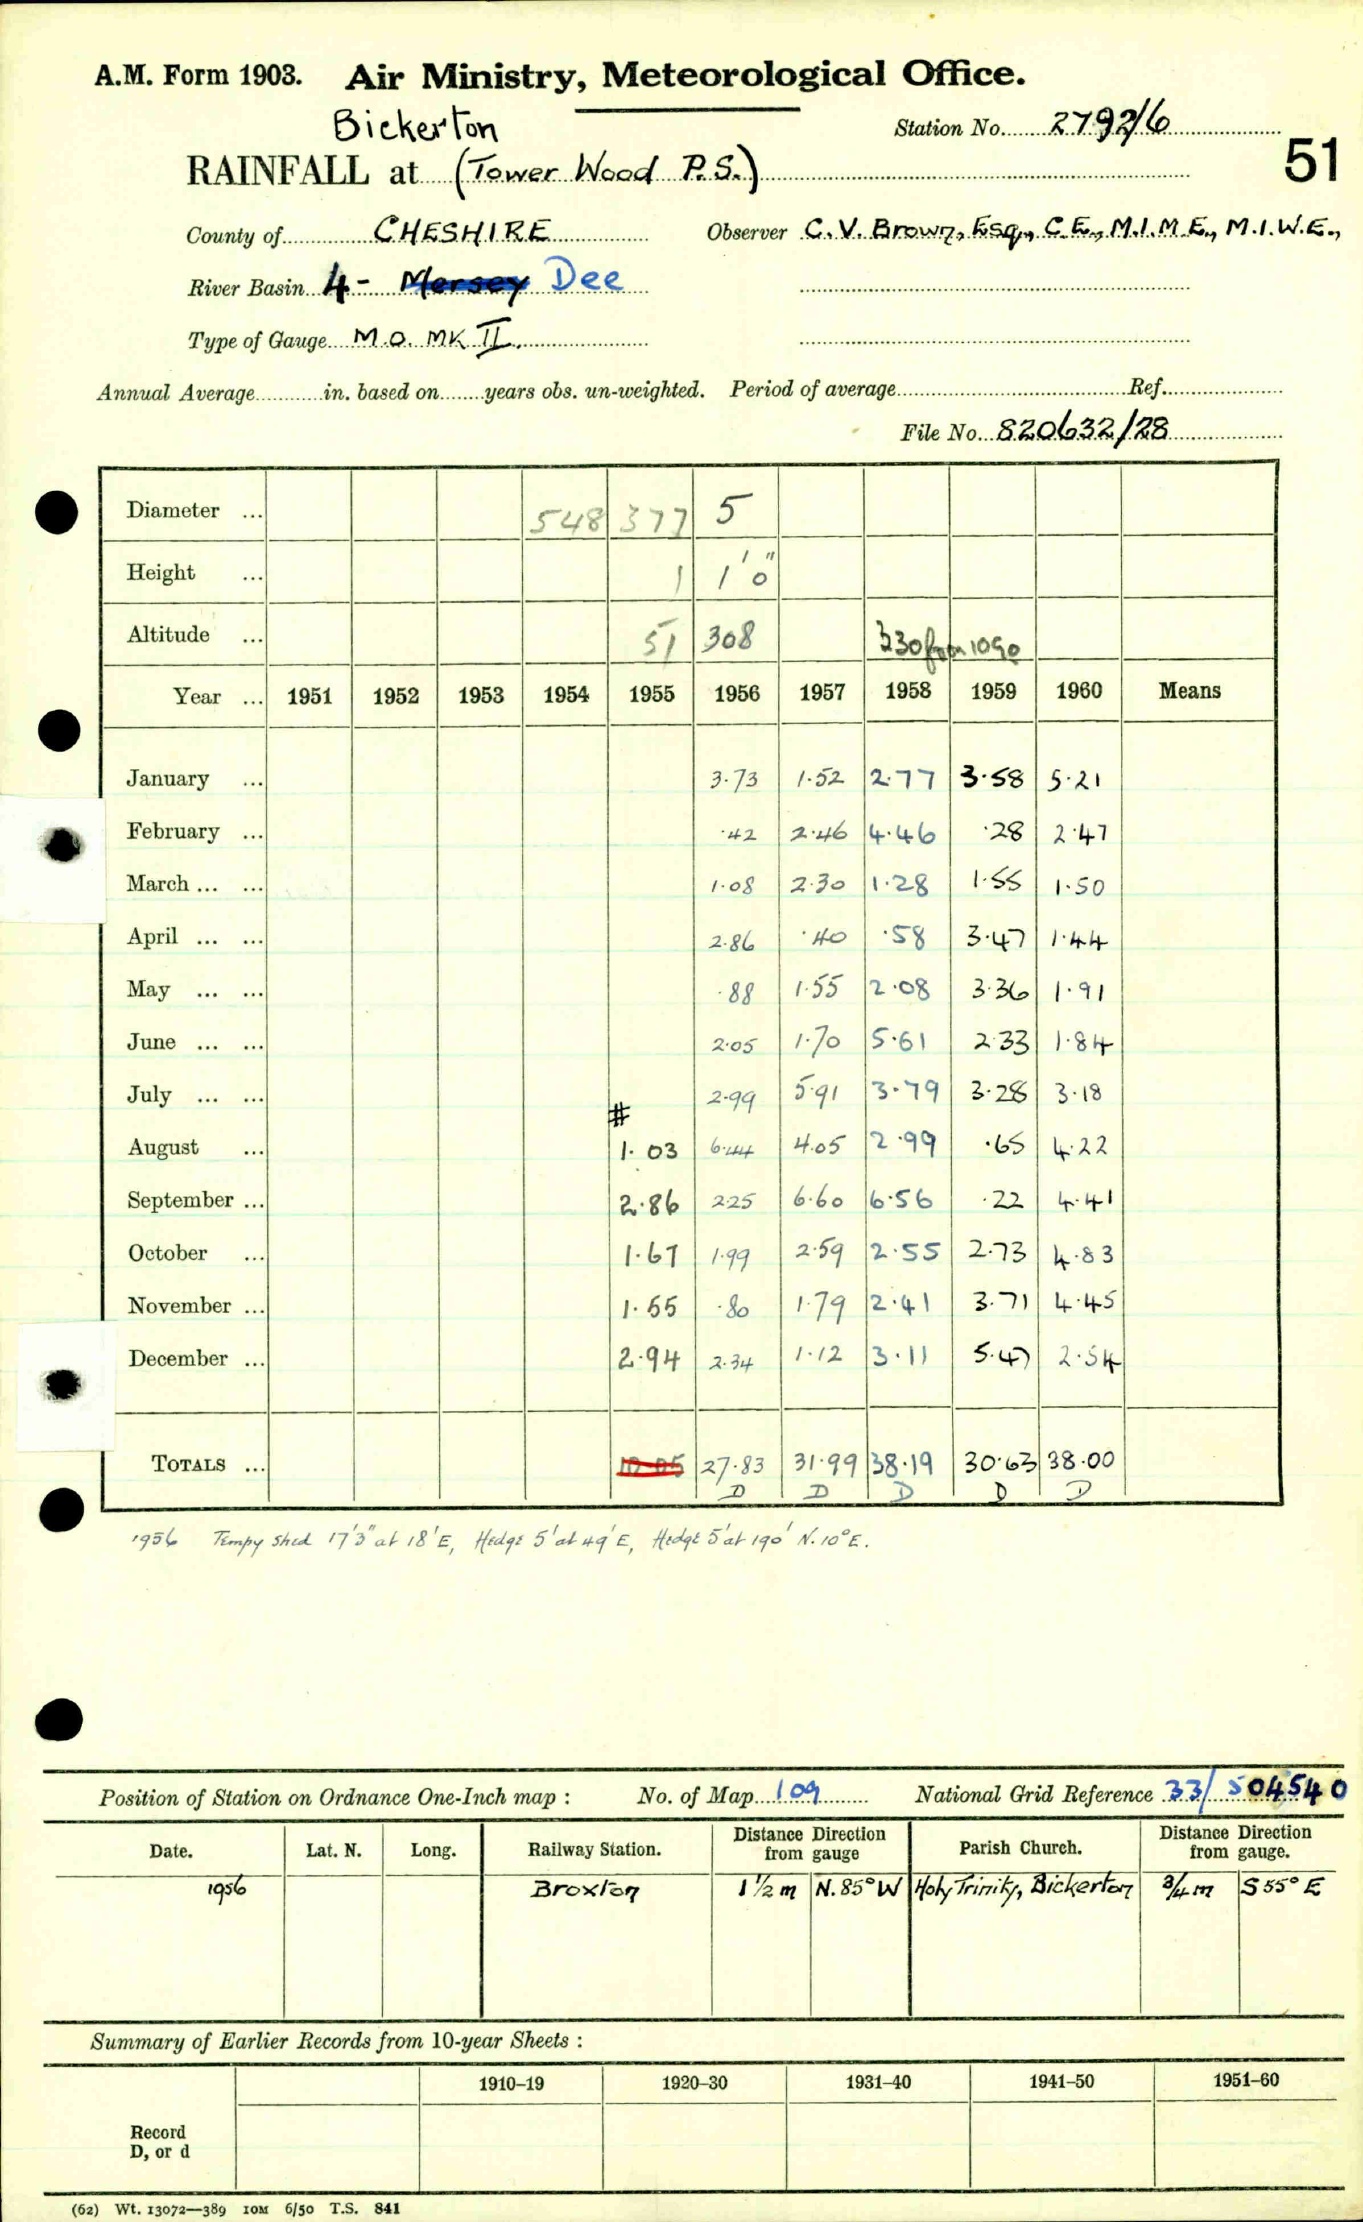 A.M. Form 1903. Air Ministry, Meteorological Office.
Bickerton
Station No. 2792/6
51
RAINFALL at (Tower Wood P.S.)
County of CHESHIRE Observer C.V. Brown, Esq., C.E., M.I.M.E., M.I.W.E.,
River Basin 4 - Mersey Dee
Type of Gauge M.O. MK II.
Annual Average in. based on years obs. un-weighted. Period of average Ref.
File No. 820632/28
Diameter ... 548 377 5
Height ... 1 1'0"
Altitude ... 51 308 330 from
Year ... 1951 1952 1953 1954 1955 1956 1957 1958 1959 1960 Means
January ... 3.73 1.52 2.77 3.58 5.21
February ... .42 2.46 4.46 .28 2.47
March ... ... 1.08 2.30 1.28 1.55 1.50
April ... ... 2.86 .40 .58 3.47 1.44
May ... ... .88 1.55 2.08 3.36 1.91
June ... ... 2.05 1.70 5.61 2.33 1.84
July ... ... 2.99 5.91 3.79 3.28 3.18
#
August ... 1.03 6.44 4.05 2.99 .65 4.22
September ... 2.86 2.25 6.60 6.56 .22 4.41
October ... 1.67 1.99 2.59 2.55 2.73 4.83
November ... 1.55 .80 1.79 2.41 3.71 4.45
December ... 2.94 2.34 1.12 3.11 5.47 2.54
TOTALS ... 10.05 27.83 31.99 38.19 30.63 38.00
D D D D D
1956 Tempy shed 17'3" at 18'E, Hedge 5' at 49'E, Hedge 5' at 190' N.10°E.
Position of Station on Ordnance One-Inch map : No. of Map 109 National Grid Reference 33/504540
Date. Lat. N. Long. Railway Station. Distance from Direction gauge Parish Church. Distance from Direction gauge.
1956 Broxton 1 1/2 m N. 85° W Holy Trinity, Bickerton 3/4 m S 55° E
Summary of Earlier Records from 10-year Sheets :
1910–19 1920–30 1931–40 1941–50 1951–60
Record
D, or d
(62) Wt. 13072—389 10M 6/50 T.S. 841